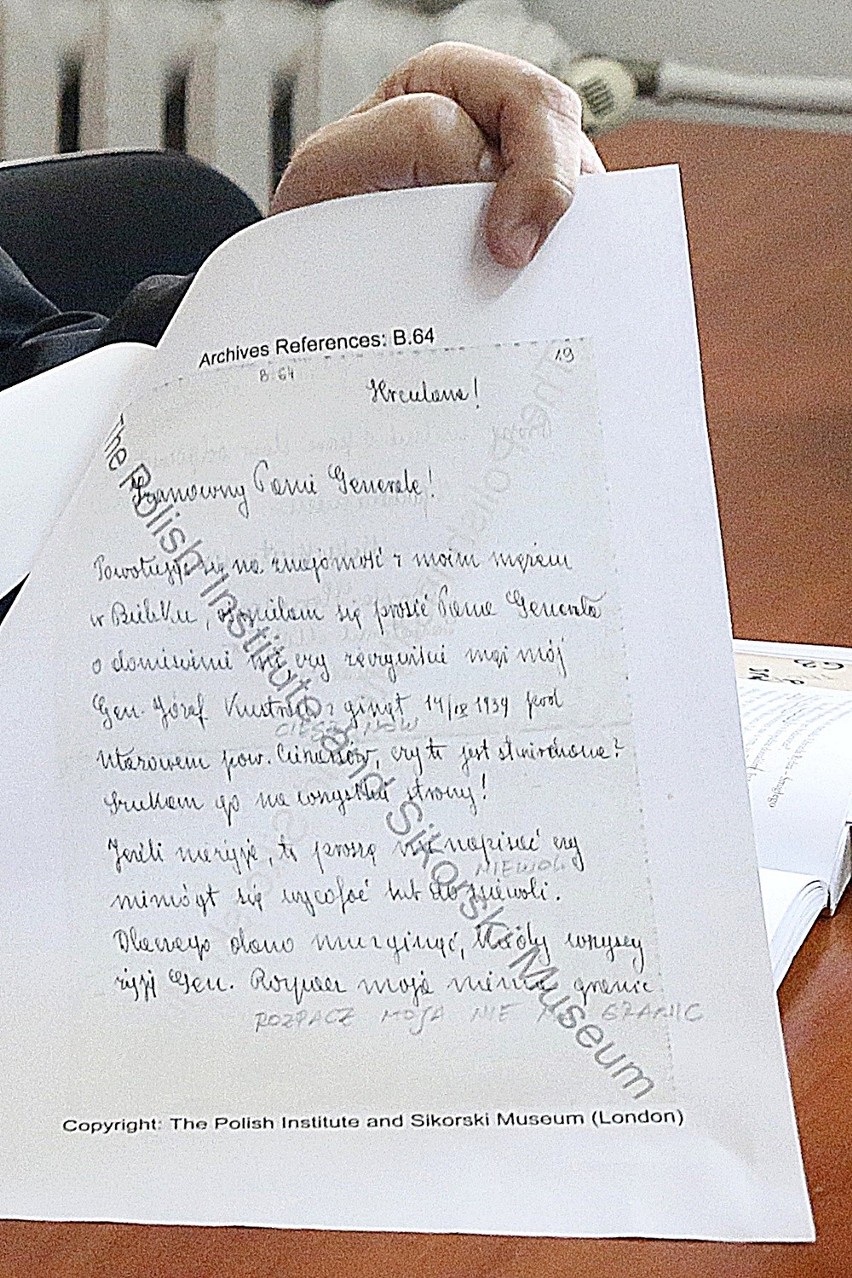 Archives References: B.64
B. 64
19
Herculane!
Szanowny Panie Generale!
Powołując się na znajomość z moim mężem
w Bielsku, ośmielam się prosić Pana Generała
o doniesienie mi, czy rzeczywiście mąż mój
Gen. Józef Kustroń zginął 14/IX 1939 pod
CIESZANÓW
Ułazowem pow. Cieszanów, czy to jest stwierdzone?
Szukam go na wszystkie strony!
Jeśli nie żyje, to proszę mi napisać czy
NIEWOLI
nie mógł się wycofać lub do niewoli.
Dlaczego dano mu zginąć, kiedy wszyscy
żyją Gen. Rozpacz moja nie ma granic
ROZPACZ MOJA NIE MA GRANIC
The Polish Institute and Sikorski Museum
Copyright: The Polish Institute and Sikorski Museum (London)